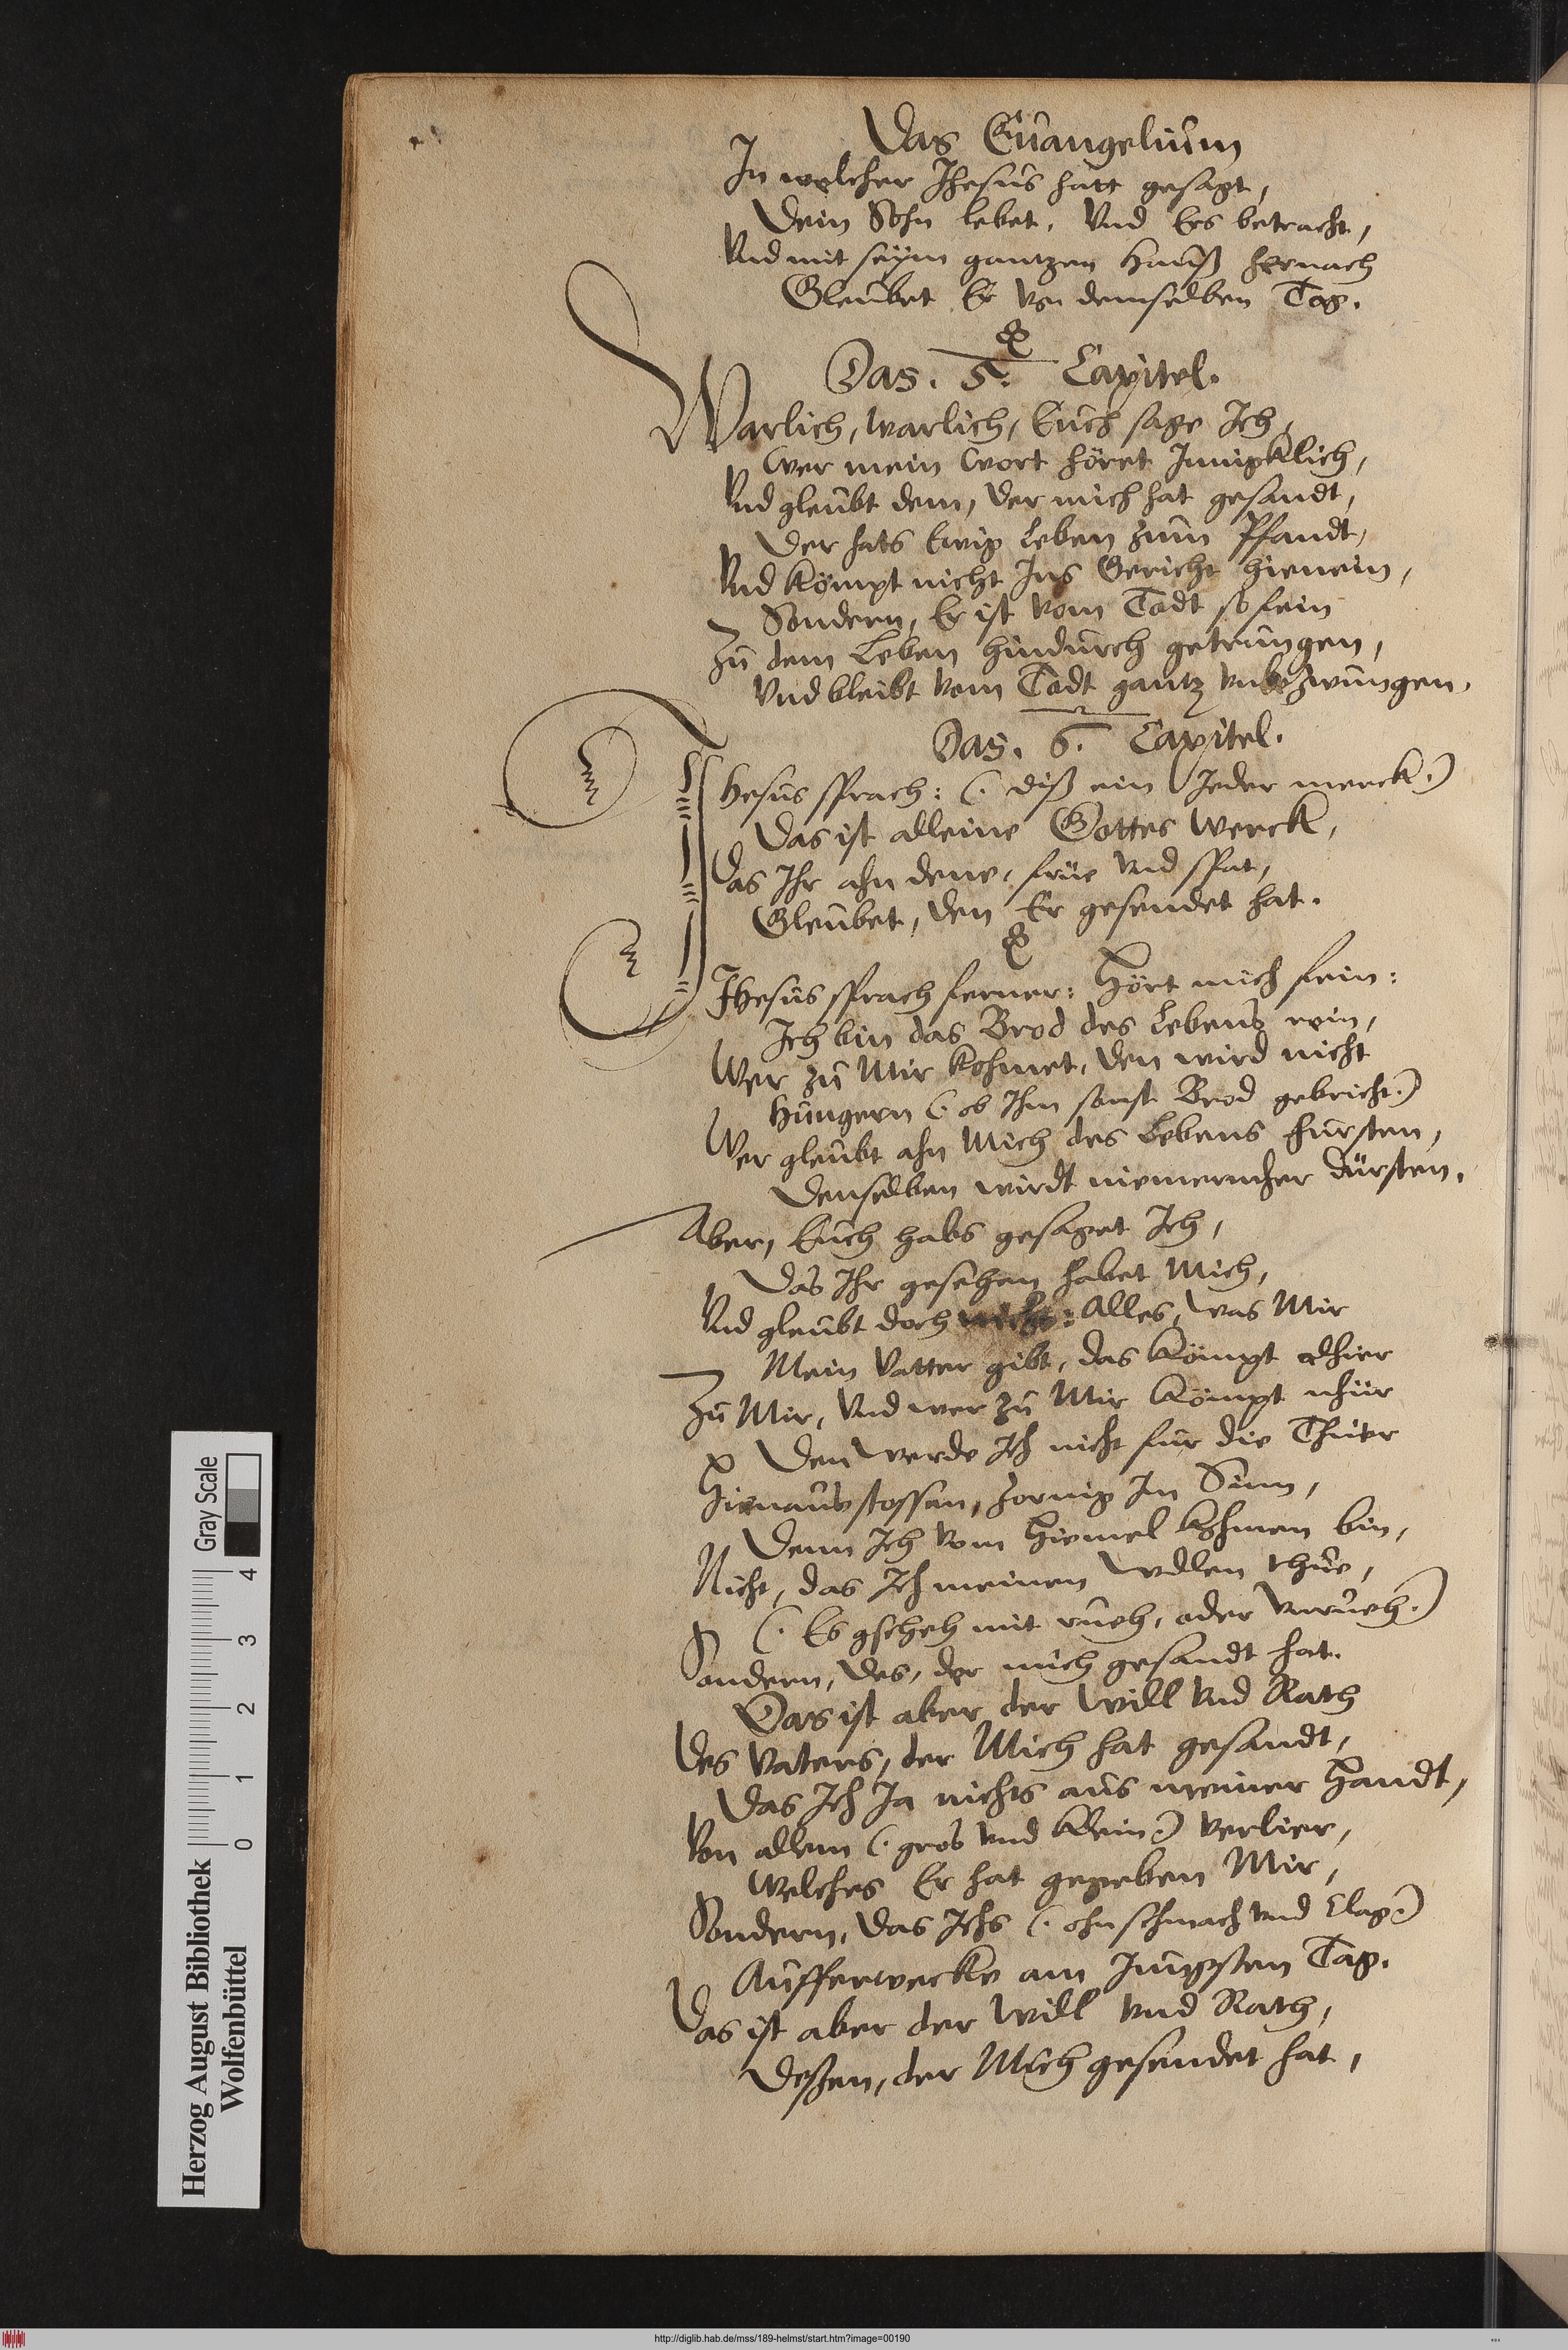 Das Euangelium
In welcher Jhesus hatt gesagt,
Dein Sohn lebet, Vnd Ers betracht,
Vnd mit seym gantzen Hauß hernach
Gleubet Er von demselben Tag.
Das. 5. Capitel.
Warlich, warlich, Euch sage Ich,
Wer mein Wort höret Innigklich,
Vnd gleubt dem, der mich hat gesandt,
Der hats Ewig Leben zum Pfandt,
Vnd kömpt nicht Ins Gericht hienein,
Sondern, Er ist vom Todt so fein
Zu dem Leben hindurch getrungen,
Vnd bleibt vom Todt gantz vnbezwungen.
Das. 6. Capitel.
IHesus sprach: (. diß ein Jeder merck.)
Das ist alleine Gottes Werck,
Das Ihr ahn dene, früe vnd spat,
Gleubet, den Er gesendet hat.
JHesus sprach ferner: Hört mich fein:
Ich bin das Brod des Lebens rein,
Wer zu Mir kohmet, den wird nicht
Hungern (. ob Ihm sonst Brod gebricht.)
Wer gleubt ahn Mich des Lebens fursten,
Denselben wirdt niemermher dürsten.
Aber, Euch habs gesaget Ich,
Das Ihr gesehen habet Mich,
Vnd gleubt doch nicht: Alles, was Mir
Mein Vatter gibt, das kömpt alhier
Zu Mir, Vnd wer zu Mir kömpt nhür
Den werde Ich nicht fur die Thüer
Hienaus stossen, zornig Im Sinn,
Denn Ich vom Hiemel kohmen bin,
Nicht, das Ich meinen willen thue,
(. Es gscheh mit rueh, oder vnrueh.)
Sondern, des, der mich gesandt hat.
Das ist aber der Will vnd Rath
Des Vaters, der Mich hat gesandt,
Das Ich Ja nichts aus meiner Handt,
Von allem (. gros vnd klein.) verlier,
Welches Er hat gegeben Mir,
Sondern, Das Ichs (. ohn schmach vnd Clag.)
Aufferwecke am Jungsten Tag.
Das ist aber der Will vnd Rath,
Deßen, der Mich gesendet hat,
Herzog August Bibliothek
Wolfenbüttel
0 1 2 3 4
Gray Scale
http://diglib.hab.de/mss/189-helmst/start.htm?image=00190